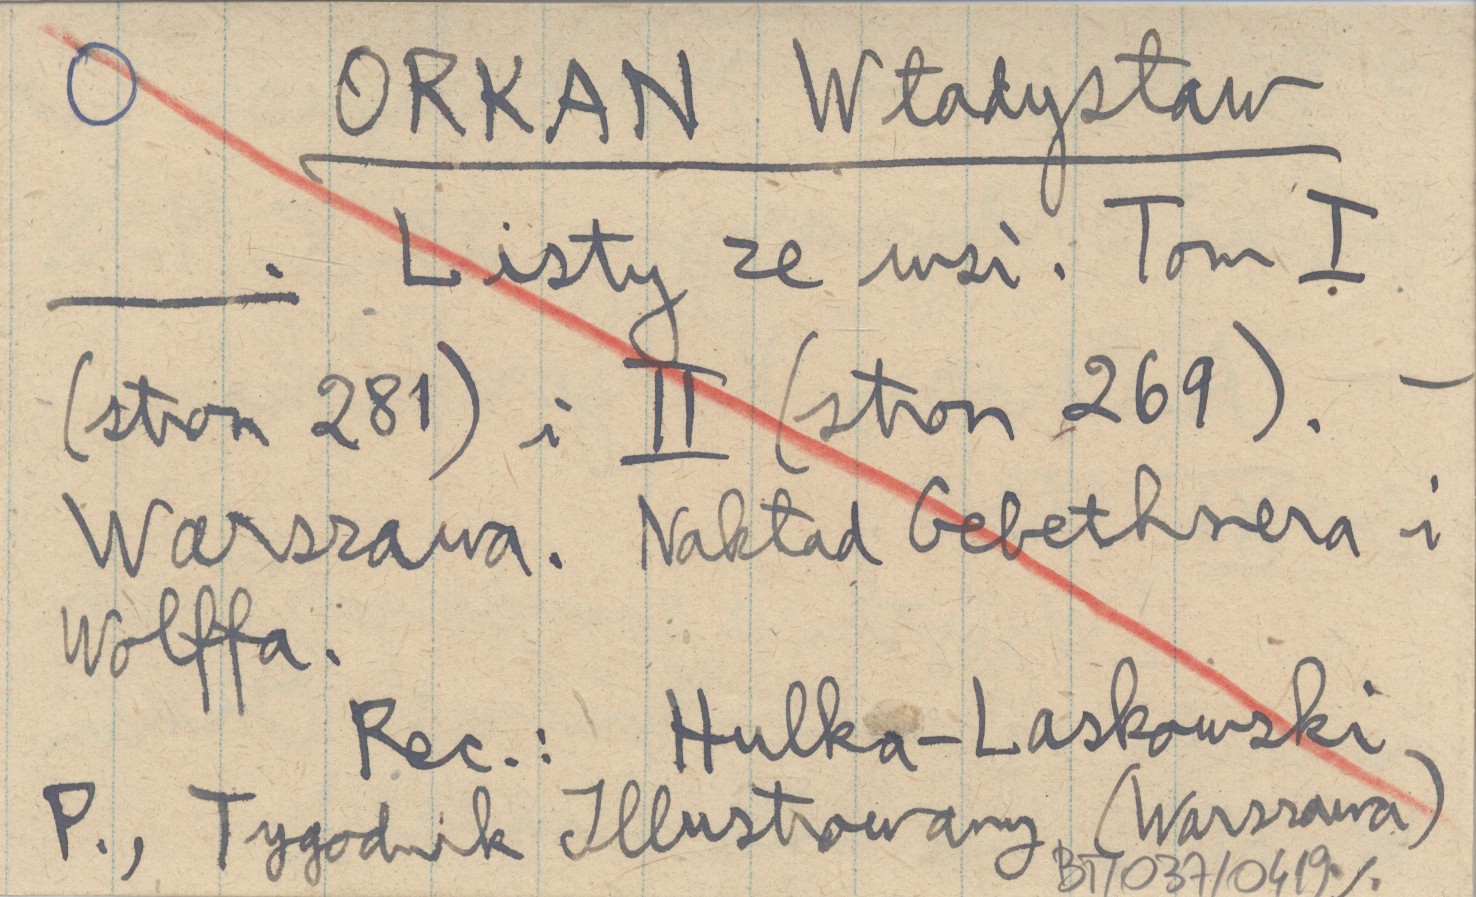 O ORKAN Władysław
. Listy ze wsi. Tom I
(stron 281) i II (stron 269). —
Warszawa. Nakład Gebethnera i
Wolffa.
Rec.: Hulka-Laskowski
P., Tygodnik Illustrowany (Warszawa)
BT/037/0419/.